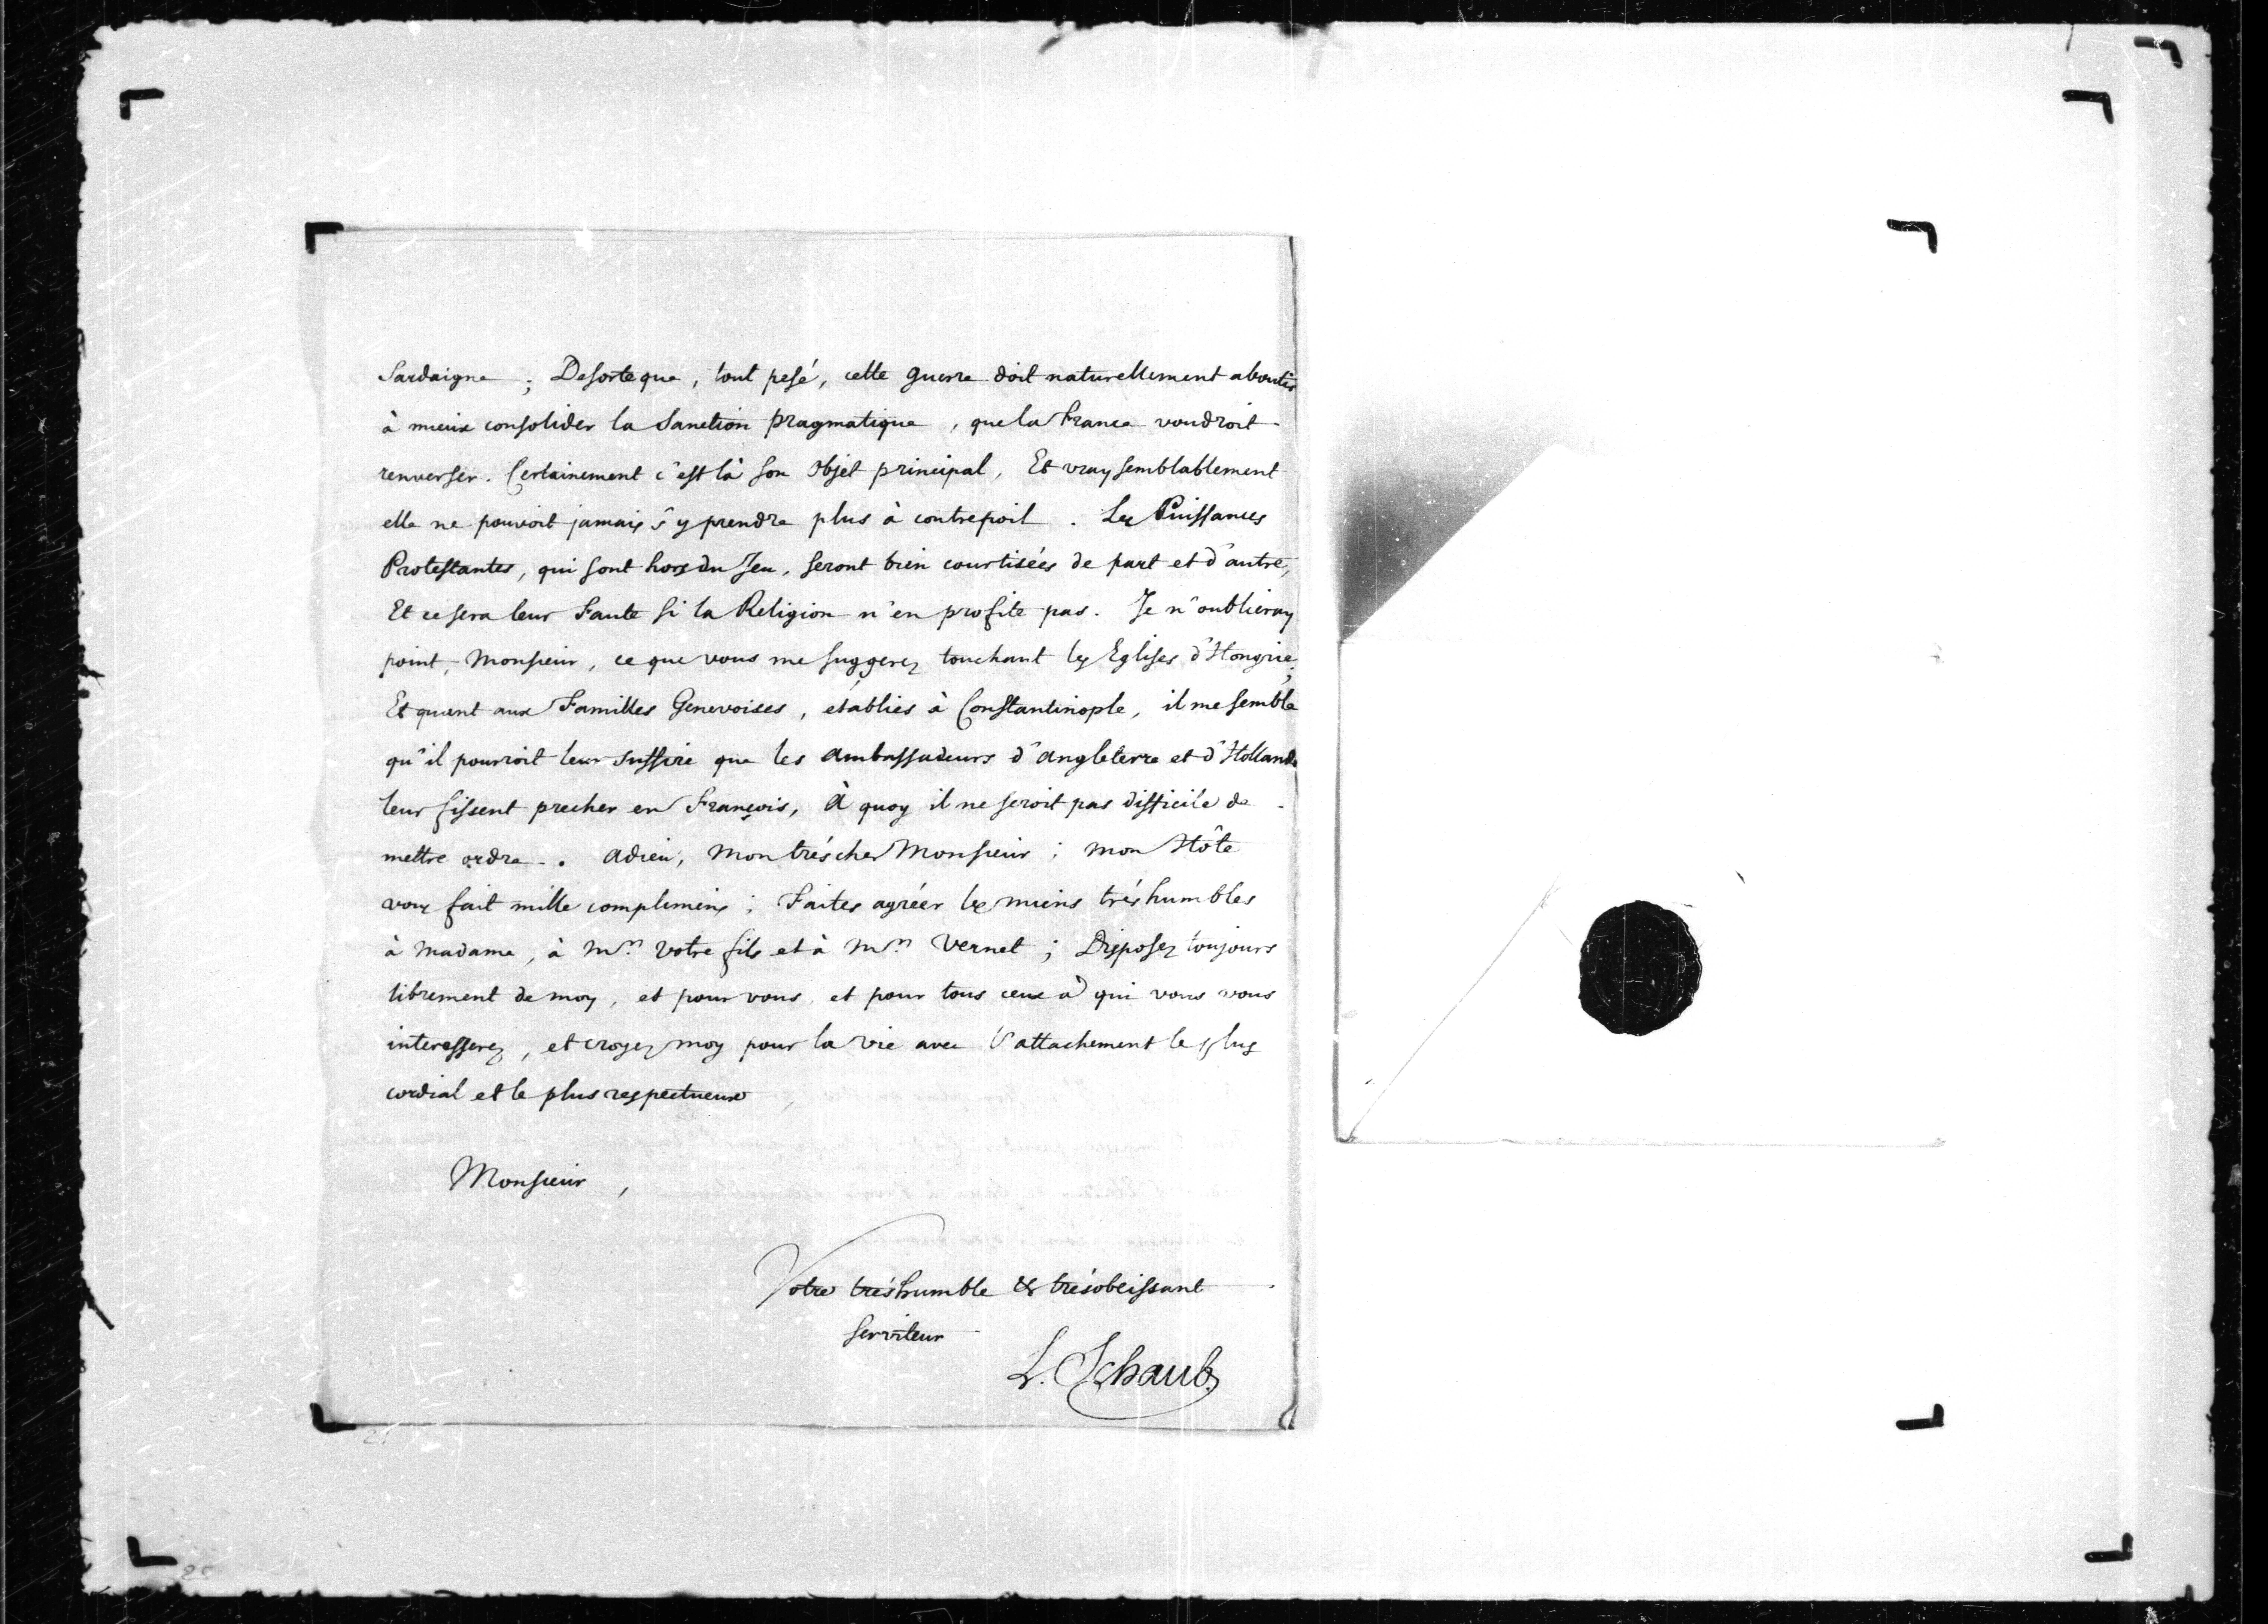 Sardaigne ; Desorte que, tout pesé, cette guerre doit naturellement aboutir
à mieux consolider la Sanction pragmatique, que la France voudroit
renverser. Certainement c'est là son Objet principal, Et vraysemblablement
elle ne pouvoit jamais s'y prendre plus à contrepoil. Les Puissances
Protestantes, qui sont hors du Jeu, seront bien courtisées de part et d'autre,
Et ce sera leur Faute si la Religion n'en profite pas. Je n'oublieray
point, Monsieur, ce que vous me suggerez touchant les Eglises d'Hongrie;
Et quant aux Familles Genevoises, etablies à Constantinople, il me semble
qu'il pourroit leur suffire que les Ambassadeurs d'Angleterre et d'Hollande
leur fissent precher en François, à quoy il ne seroit pas difficile de
mettre ordre. Adieu, mon tréscher Monsieur ; mon Hôte
vous fait mille complimens ; Faites agréer les miens tréshumbles
à Madame, à Mr. votre fils et à Mr. Vernet ; Disposez toujours
librement de moy, et pour vous, et pour tous ceux à qui vous vous
interesserez, et croyez moy pour la vie avec l'attachement le plus
cordial et le plus respectueux,
Monsieur,
Votre tréshumble & trésobeissant
serviteur
L. Schaub.
21
25